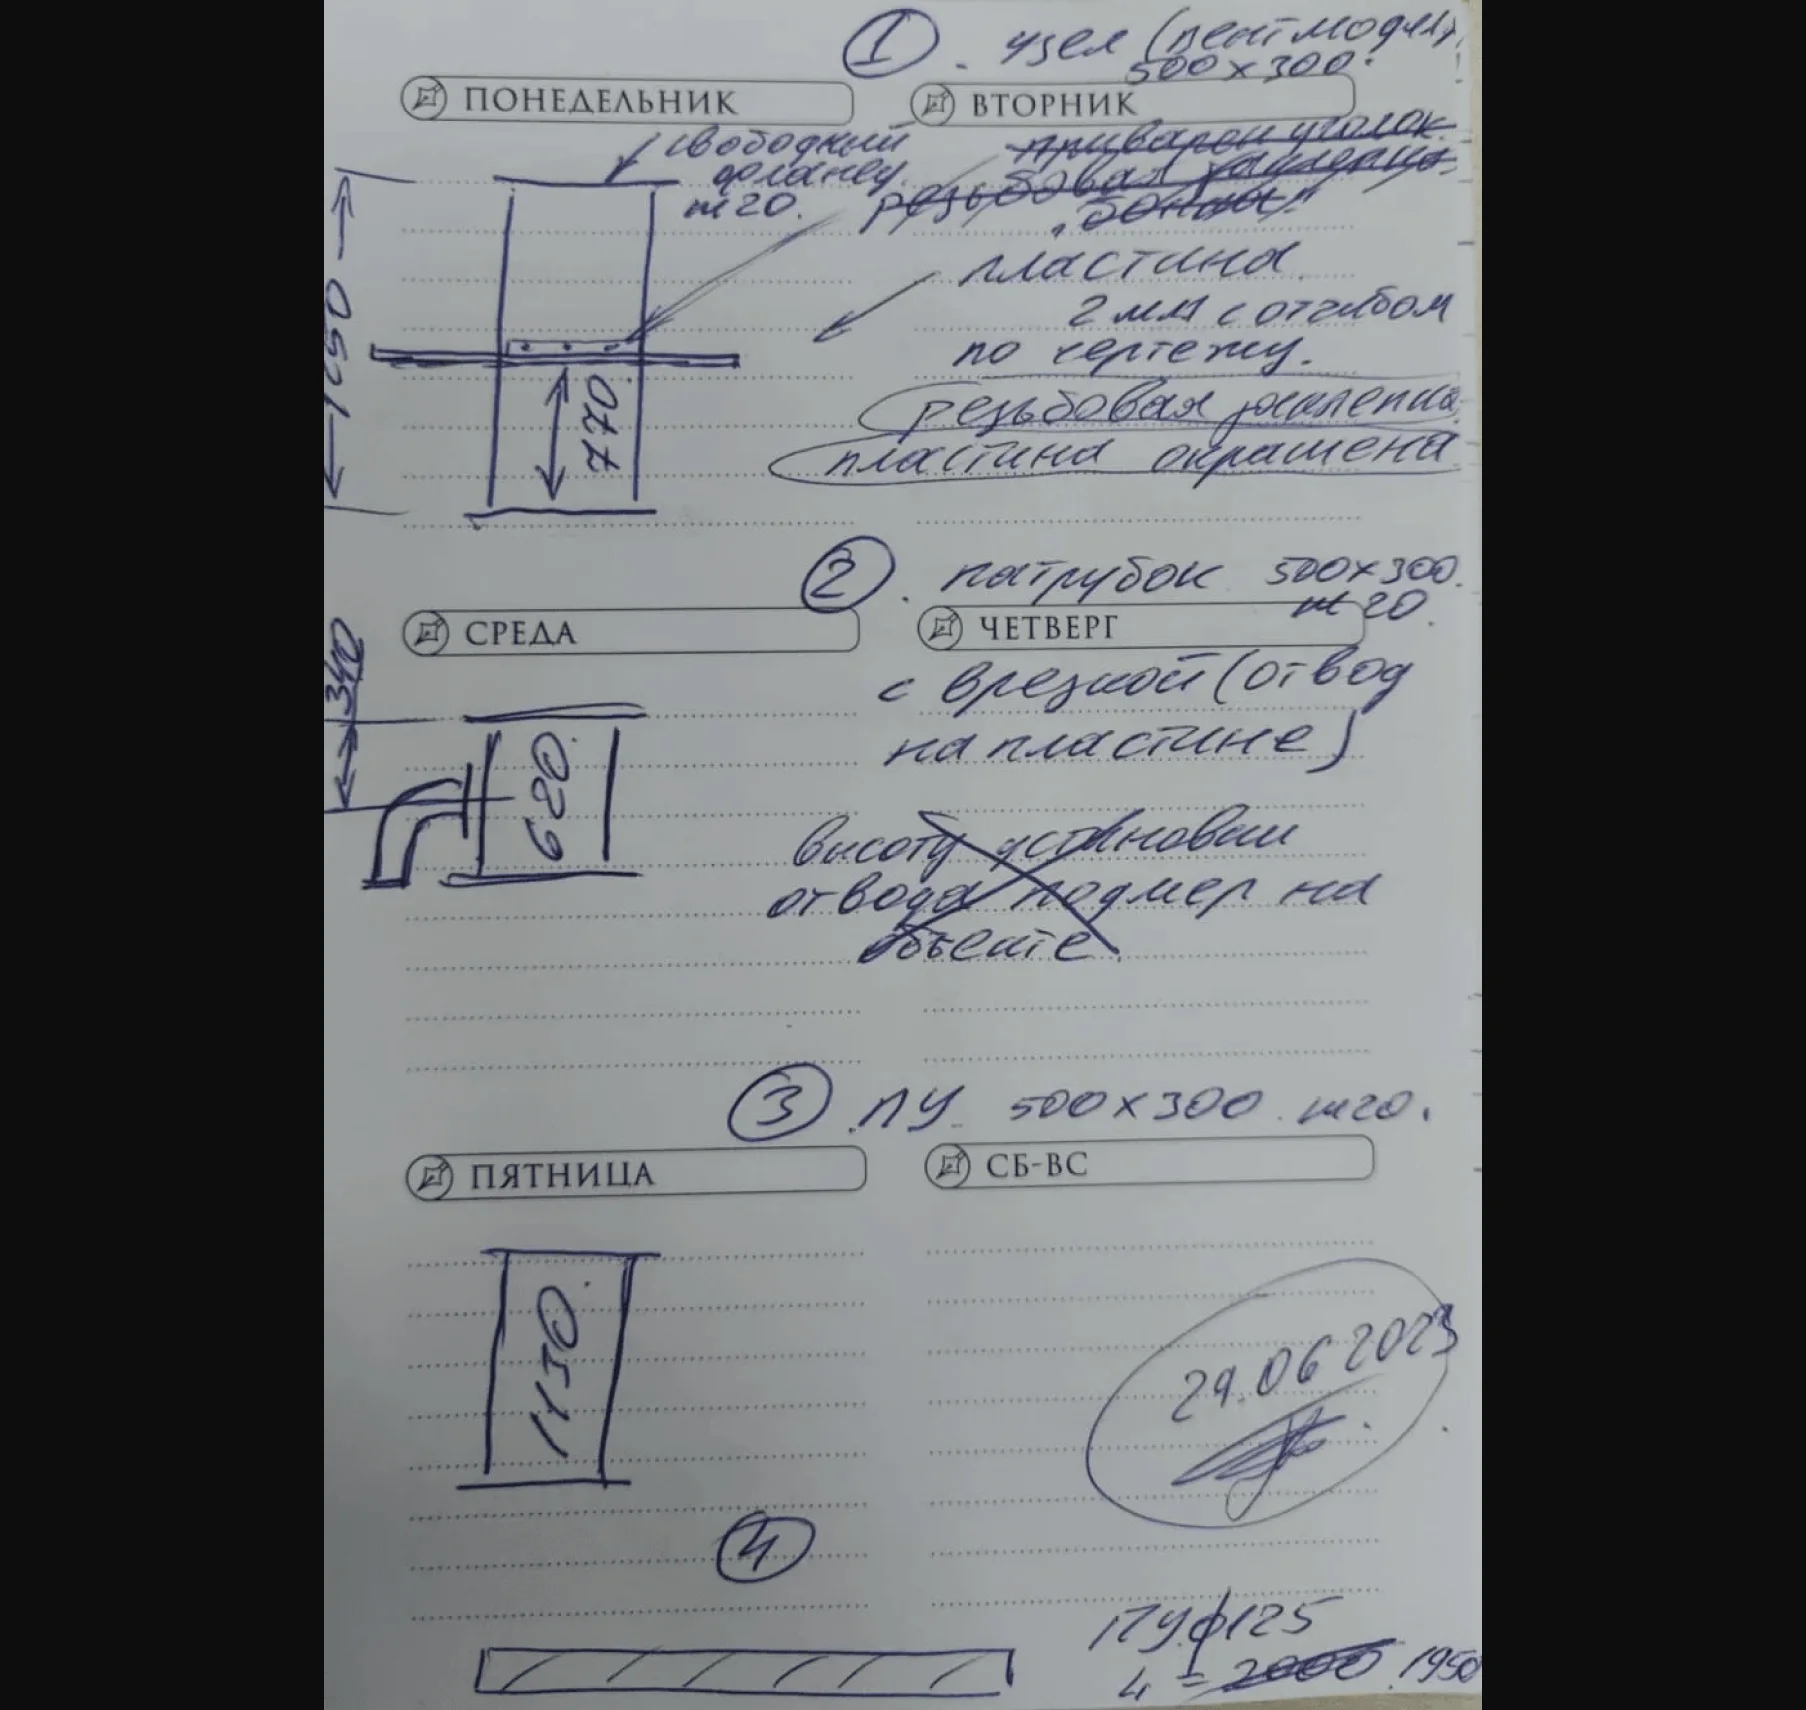 1. узел (вентмодуль)
500х300.
ПОНЕДЕЛЬНИК
ВТОРНИК
свободный
фланец
ш20.
приварен уголок
резьбовая заклепка
"бонка"
1250
пластина
2 мм с отгибом
по чертежу.
770
резьбовая заклепка
пластина окрашена
2. патрубок 500х300.
ш20.
СРЕДА
ЧЕТВЕРГ
340
с врезкой (отвод
на пластине)
620.
высоту установки
отвода подмер на
объекте.
3 ПУ 500х300 ш20.
ПЯТНИЦА
СБ-ВС
1130.
29.06 2023
4
ПУ ф125
L = 2000 1950